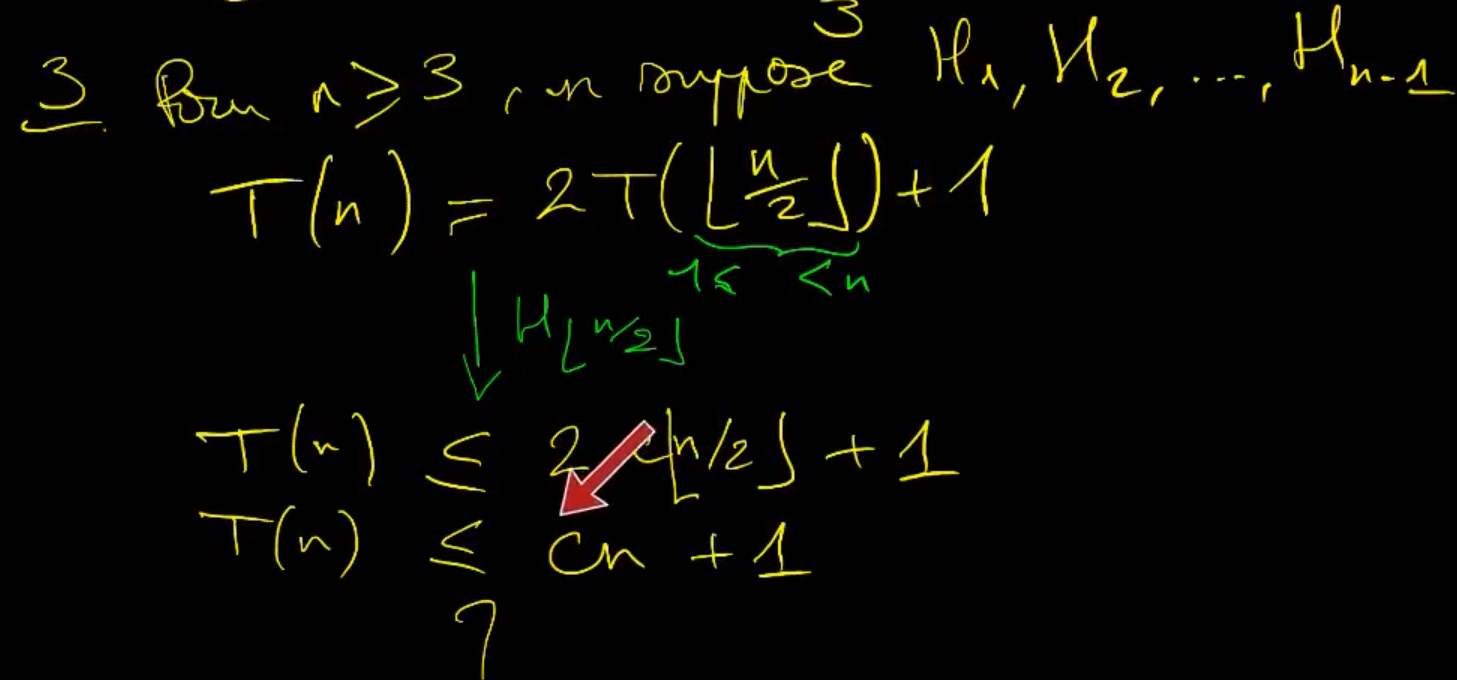 3
3. Pour n ≥ 3, on suppose H₁, H₂, ..., Hₙ₋₁
T(n) = 2T(⌊n/2⌋) + 1
1≤ <n
H⌊n/2⌋
T(n) ≤ 2 c⌊n/2⌋ + 1
T(n) ≤ cn + 1
?